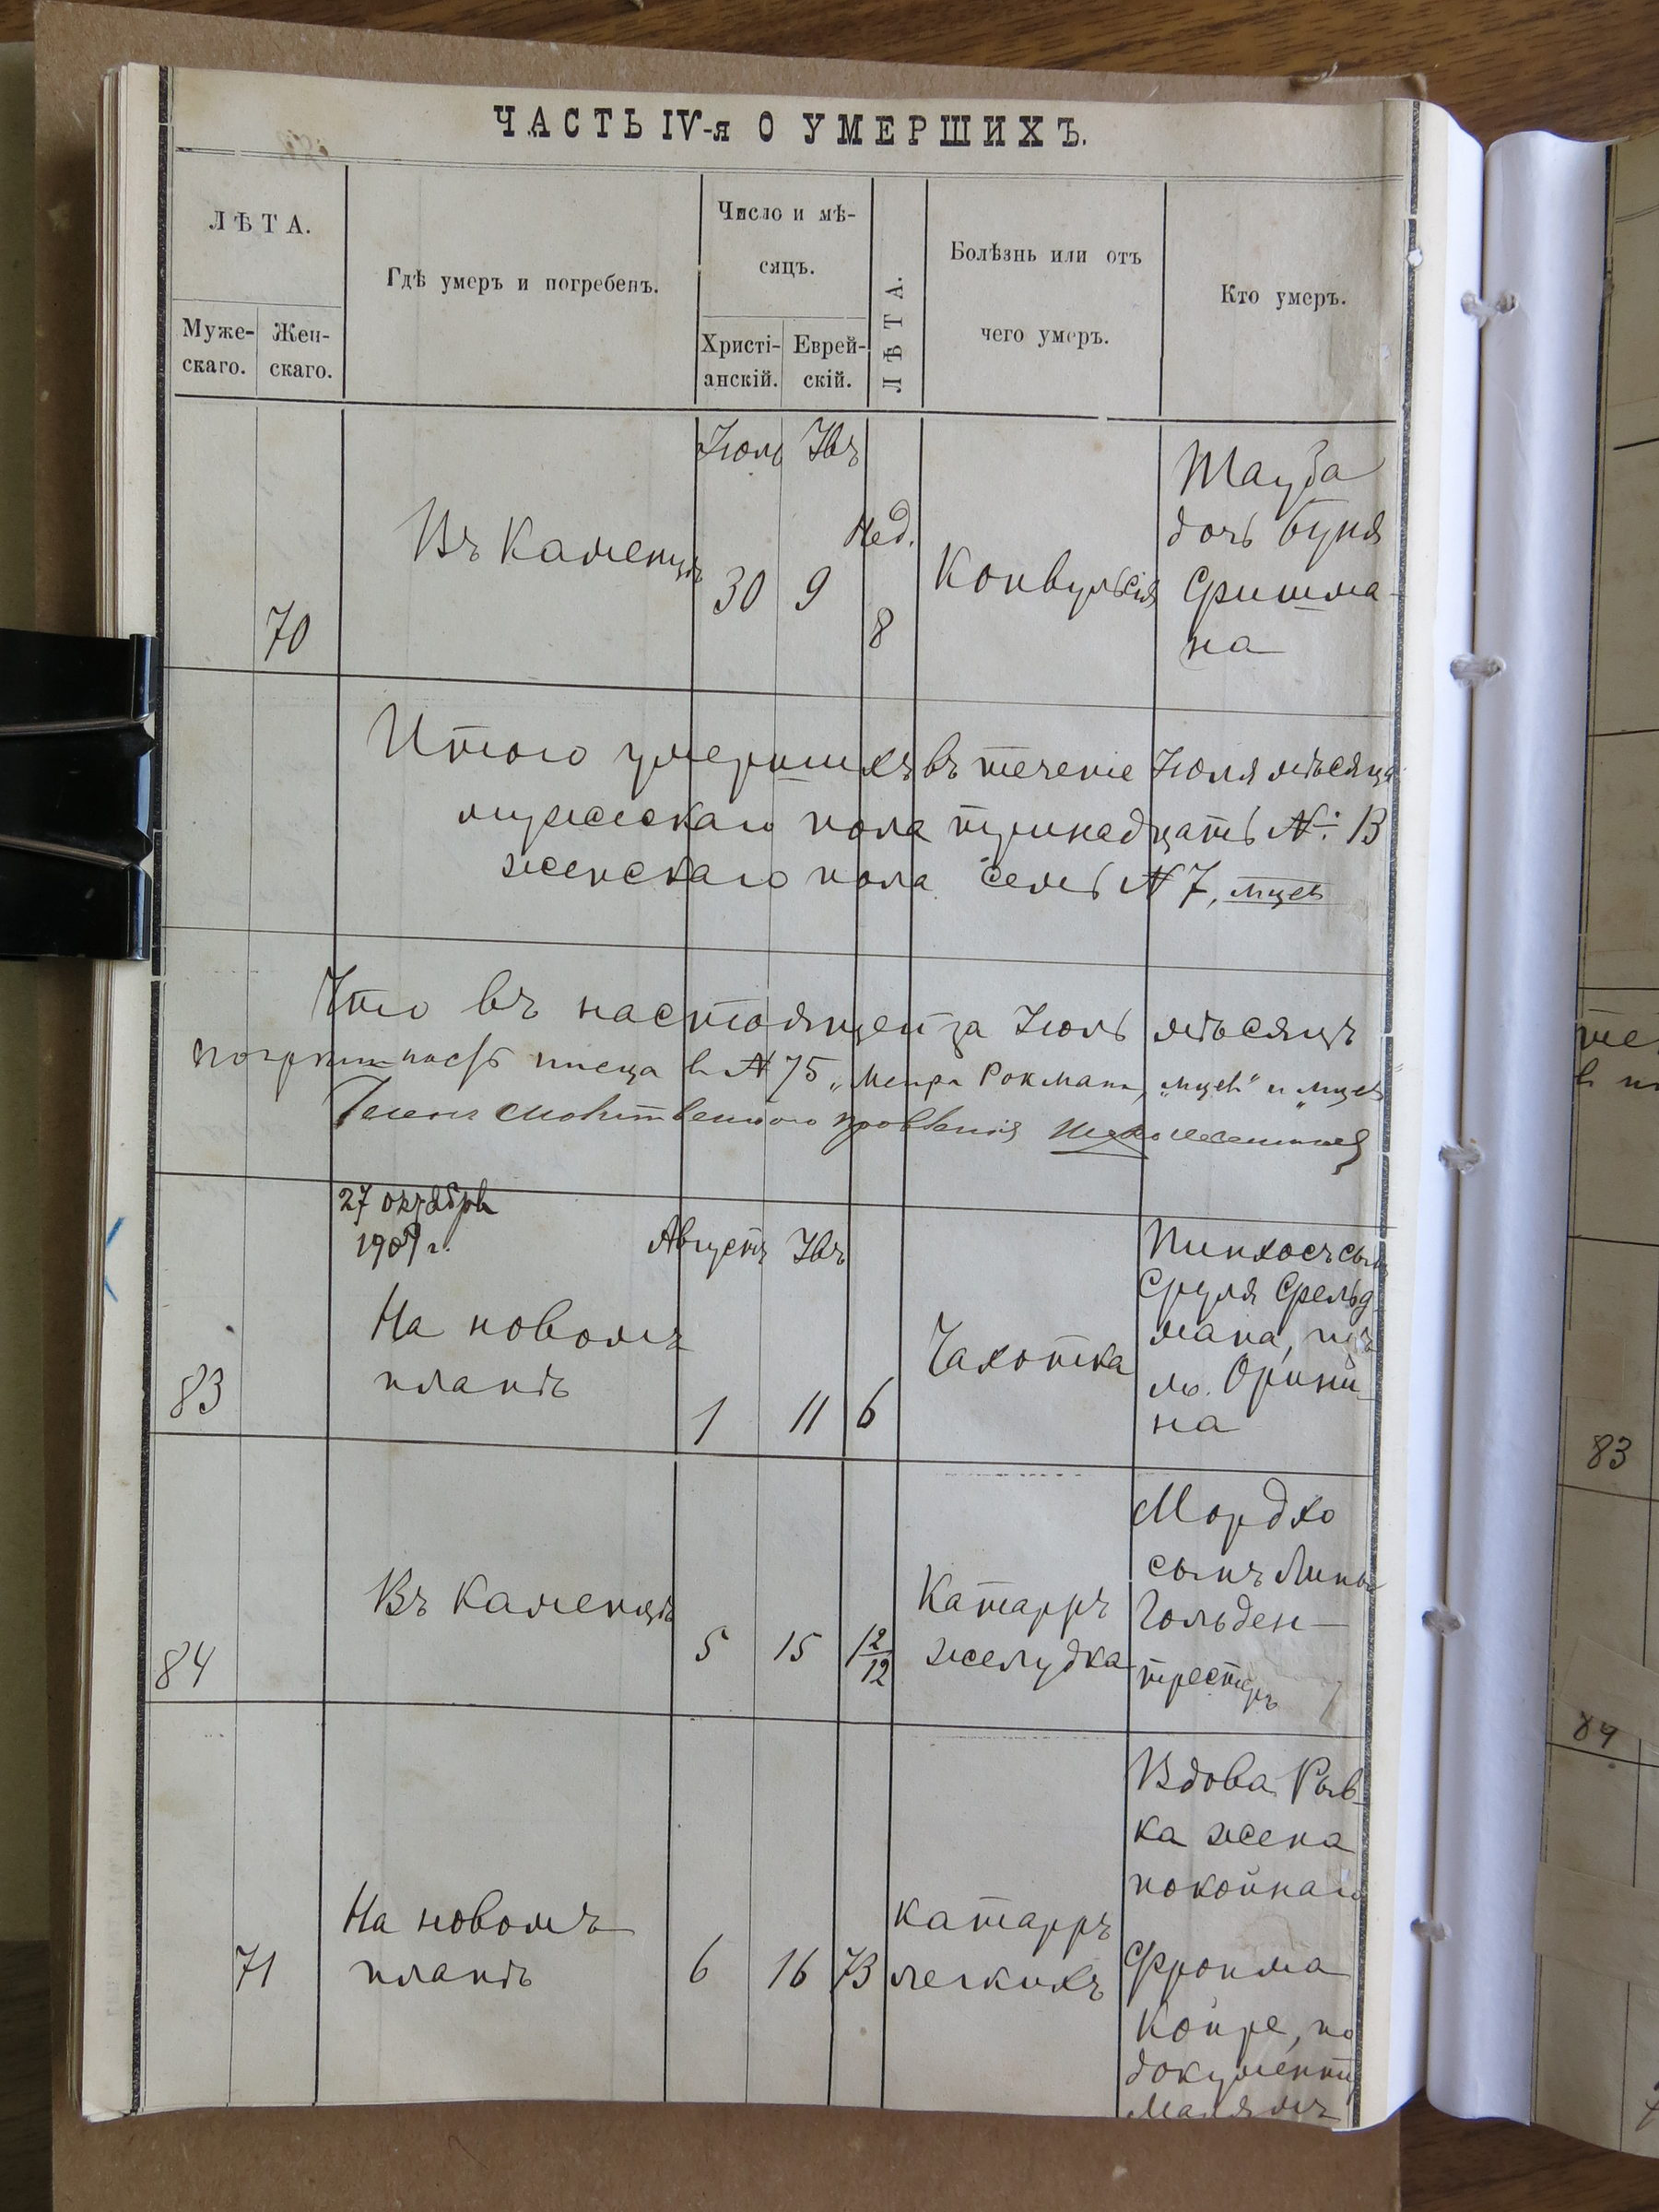 ЧАСТЬ IV-я О УМЕРШИХЪ.
ЛѢТА.
Муже-
скаго.
Жен-
скаго.
Гдѣ умеръ и погребенъ.
Число и мѣ-
сяцъ.
Христі-
анскій.
Еврей-
скій.
ЛѢТА.
Болѣзнь или отъ
чего умеръ.
Кто умеръ.
Іюль Авъ
70
Въ Каменцѣ
30 9
Нед.
8
Конвульсія
дочь Буня
Фишма-
на
Итого умершихъ въ теченіе Іюля мѣсяца
мужескаго пола тринадцать №: 13
женскаго пола семь № 7,
Что въ настоящей за Іюль мѣсяцъ
писца в № 75 „Меира Рокмана,
27 октября
1909 г.
Августъ Авъ
83
На новомъ
планѣ
1 11 6
Чахотка
Пинхосъ сынъ
Сруля Фельд
мана, изъ
м. Орини
на
84
Въ Каменцѣ
5 15 1 2/12
Катарръ
желудка
Мордко
сынъ Липы
Гольден-
71
На новомъ
планѣ
6 16 73
катарръ
легкихъ
Вдова Рыв-
ка жена
покойнаго
Фроима
Койре, по
документу
83
84